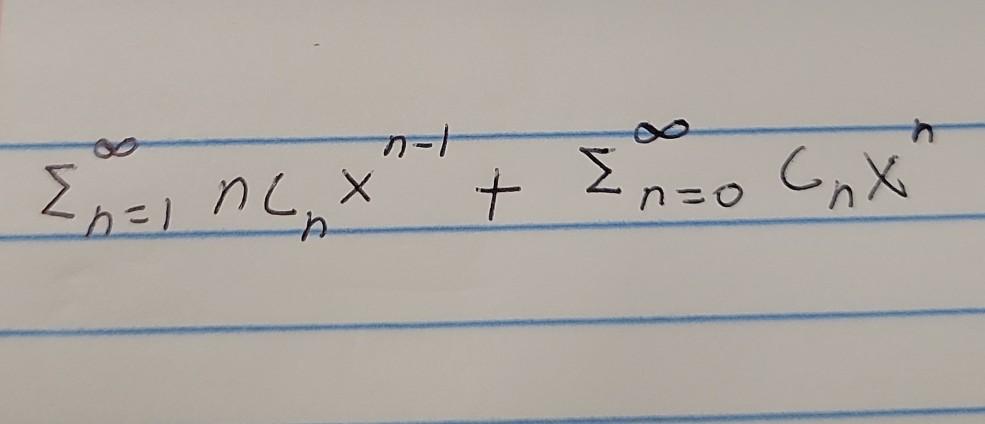 Σ_{n=1}^{∞} n c_n x^{n-1} + Σ_{n=0}^{∞} c_n x^n